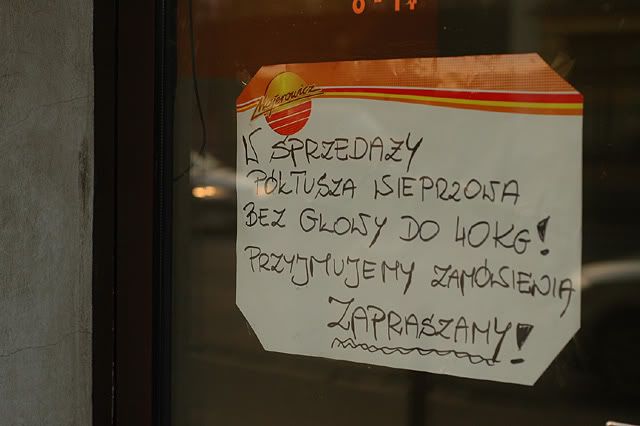 8-17
Majerowicz
W SPRZEDAŻY
PÓŁTUSZA WIEPRZOWA
BEZ GŁOWY DO 40KG!
PRZYJMUJEMY ZAMÓWIENIA
ZAPRASZAMY!